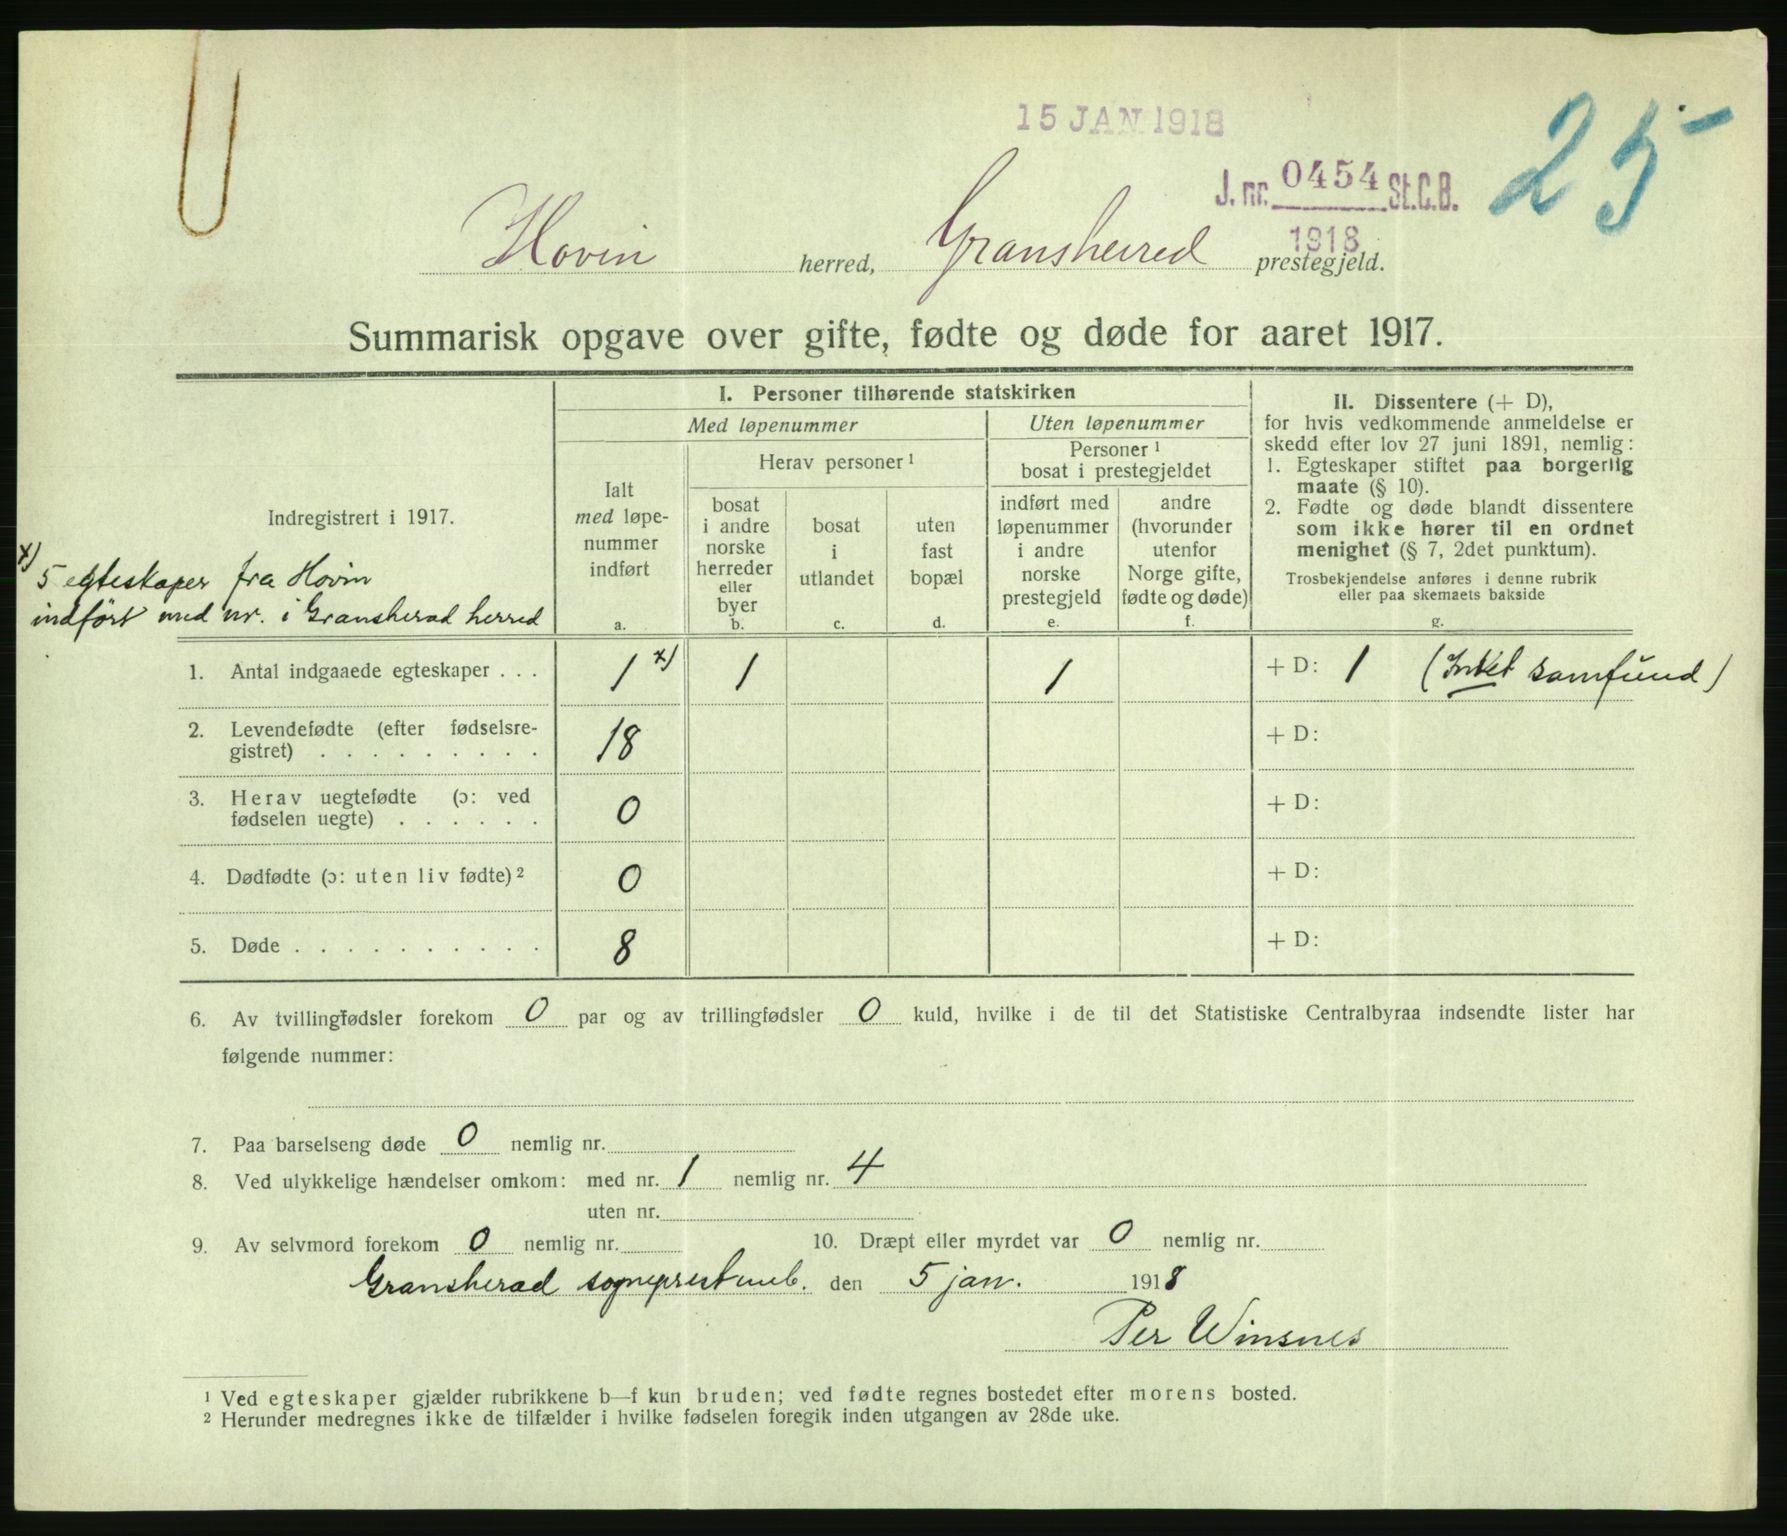 15 JAN 1918
25
J. nr. 0454 St.C.B.
1918
Hovin herred, Gransherred prestegjeld.
Summarisk opgave over gifte, fødte og døde for aaret 1917.
Indregistrert i 1917.
x) 5 egteskaper fra Hovin
indført med nr. i Gransherad herred
I. Personer tilhørende statskirken
Med løpenummer
Uten løpenummer
Ialt
med løpe-
nummer
indført
a.
Herav personer ¹
bosat
i andre
norske
herreder
eller
byer
b.
bosat
i
utlandet
c.
uten
fast
bopæl
d.
Personer ¹
bosat i prestegjeldet
indført med
løpenummer
i andre
norske
prestegjeld
e.
andre
(hvorunder
utenfor
Norge gifte,
fødte og døde)
f.
II. Dissentere (+ D),
for hvis vedkommende anmeldelse er
skedd efter lov 27 juni 1891, nemlig:
1. Egteskaper stiftet paa borgerlig
maate (§ 10).
2. Fødte og døde blandt dissentere
som ikke hører til en ordnet
menighet (§ 7, 2det punktum).
Trosbekjendelse anføres i denne rubrik
eller paa skemaets bakside
g.
1. Antal indgaaede egteskaper . . . 1 x) 1 1 + D: 1 (Intet samfund)
2. Levendefødte (efter fødselsre-
gistret) . . . . . . . . . 18 + D:
3. Herav uegtefødte (ɔ: ved
fødselen uegte) . . . . . . 0 + D:
4. Dødfødte (ɔ: uten liv fødte) ² 0 + D:
5. Døde . . . . . . . . . . 8 + D:
6. Av tvillingfødsler forekom 0 par og av trillingfødsler 0 kuld, hvilke i de til det Statistiske Centralbyraa indsendte lister har
følgende nummer:
7. Paa barselseng døde 0 nemlig nr.
8. Ved ulykkelige hændelser omkom: med nr. 1 nemlig nr. 4
uten nr.
9. Av selvmord forekom 0 nemlig nr. 10. Dræpt eller myrdet var 0 nemlig nr.
Gransherad sogneprestemb. den 5 jan. 1918
Per Winsnes
¹ Ved egteskaper gjælder rubrikkene b—f kun bruden; ved fødte regnes bostedet efter morens bosted.
² Herunder medregnes ikke de tilfælder i hvilke fødselen foregik inden utgangen av 28de uke.